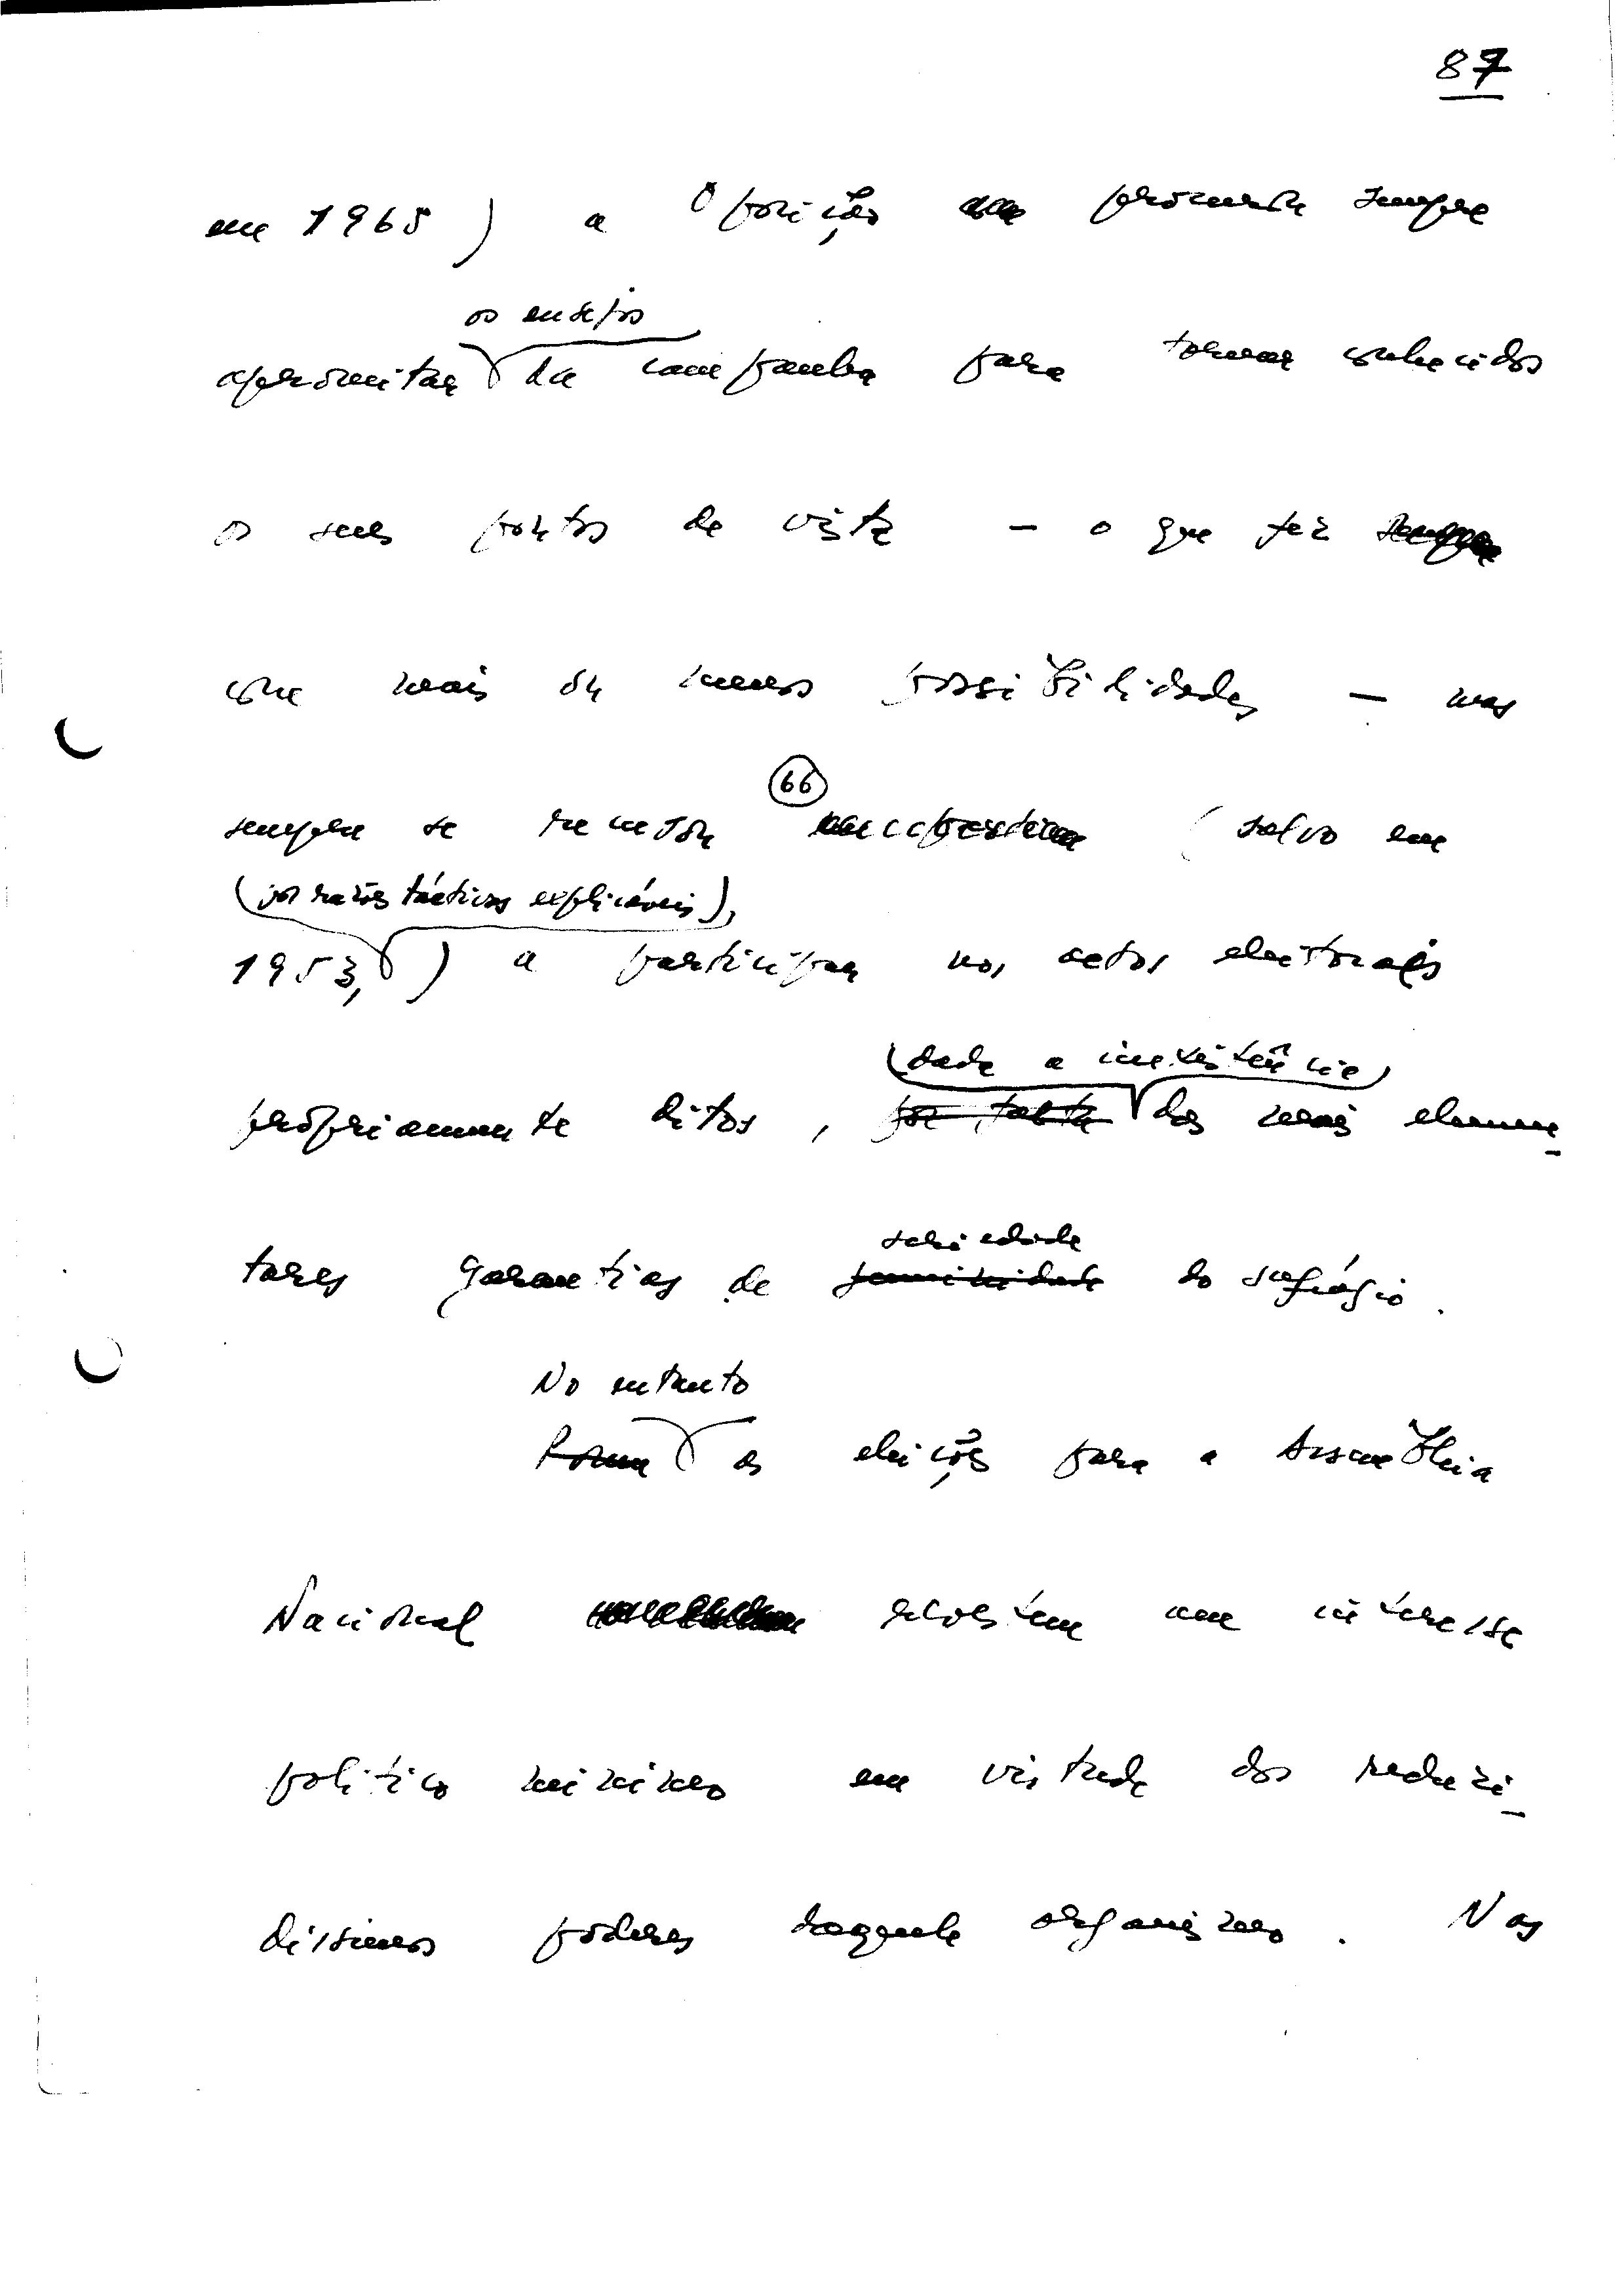 87
em 1965) a Oposição procurou sempre
os ensejos
aproveitar da campanha para tornar conhecidos
os seus pontos de vista - o que fez
com mais ou menos possibilidades - mas
66
sempre se recusou (salvo em
(por razões tácticas explicáveis),
1953,) a participar nos actos eleitorais
(dada a inexistência)
propriamente ditos, por falta das mais elemen-
seriedade
tares garantias de genuinidade do sufrágio.
No entanto
Porém as eleições para a Assembleia
Nacional revestem um interesse
político mínimo em virtude dos reduzi-
díssimos poderes daquele organismo. Nas